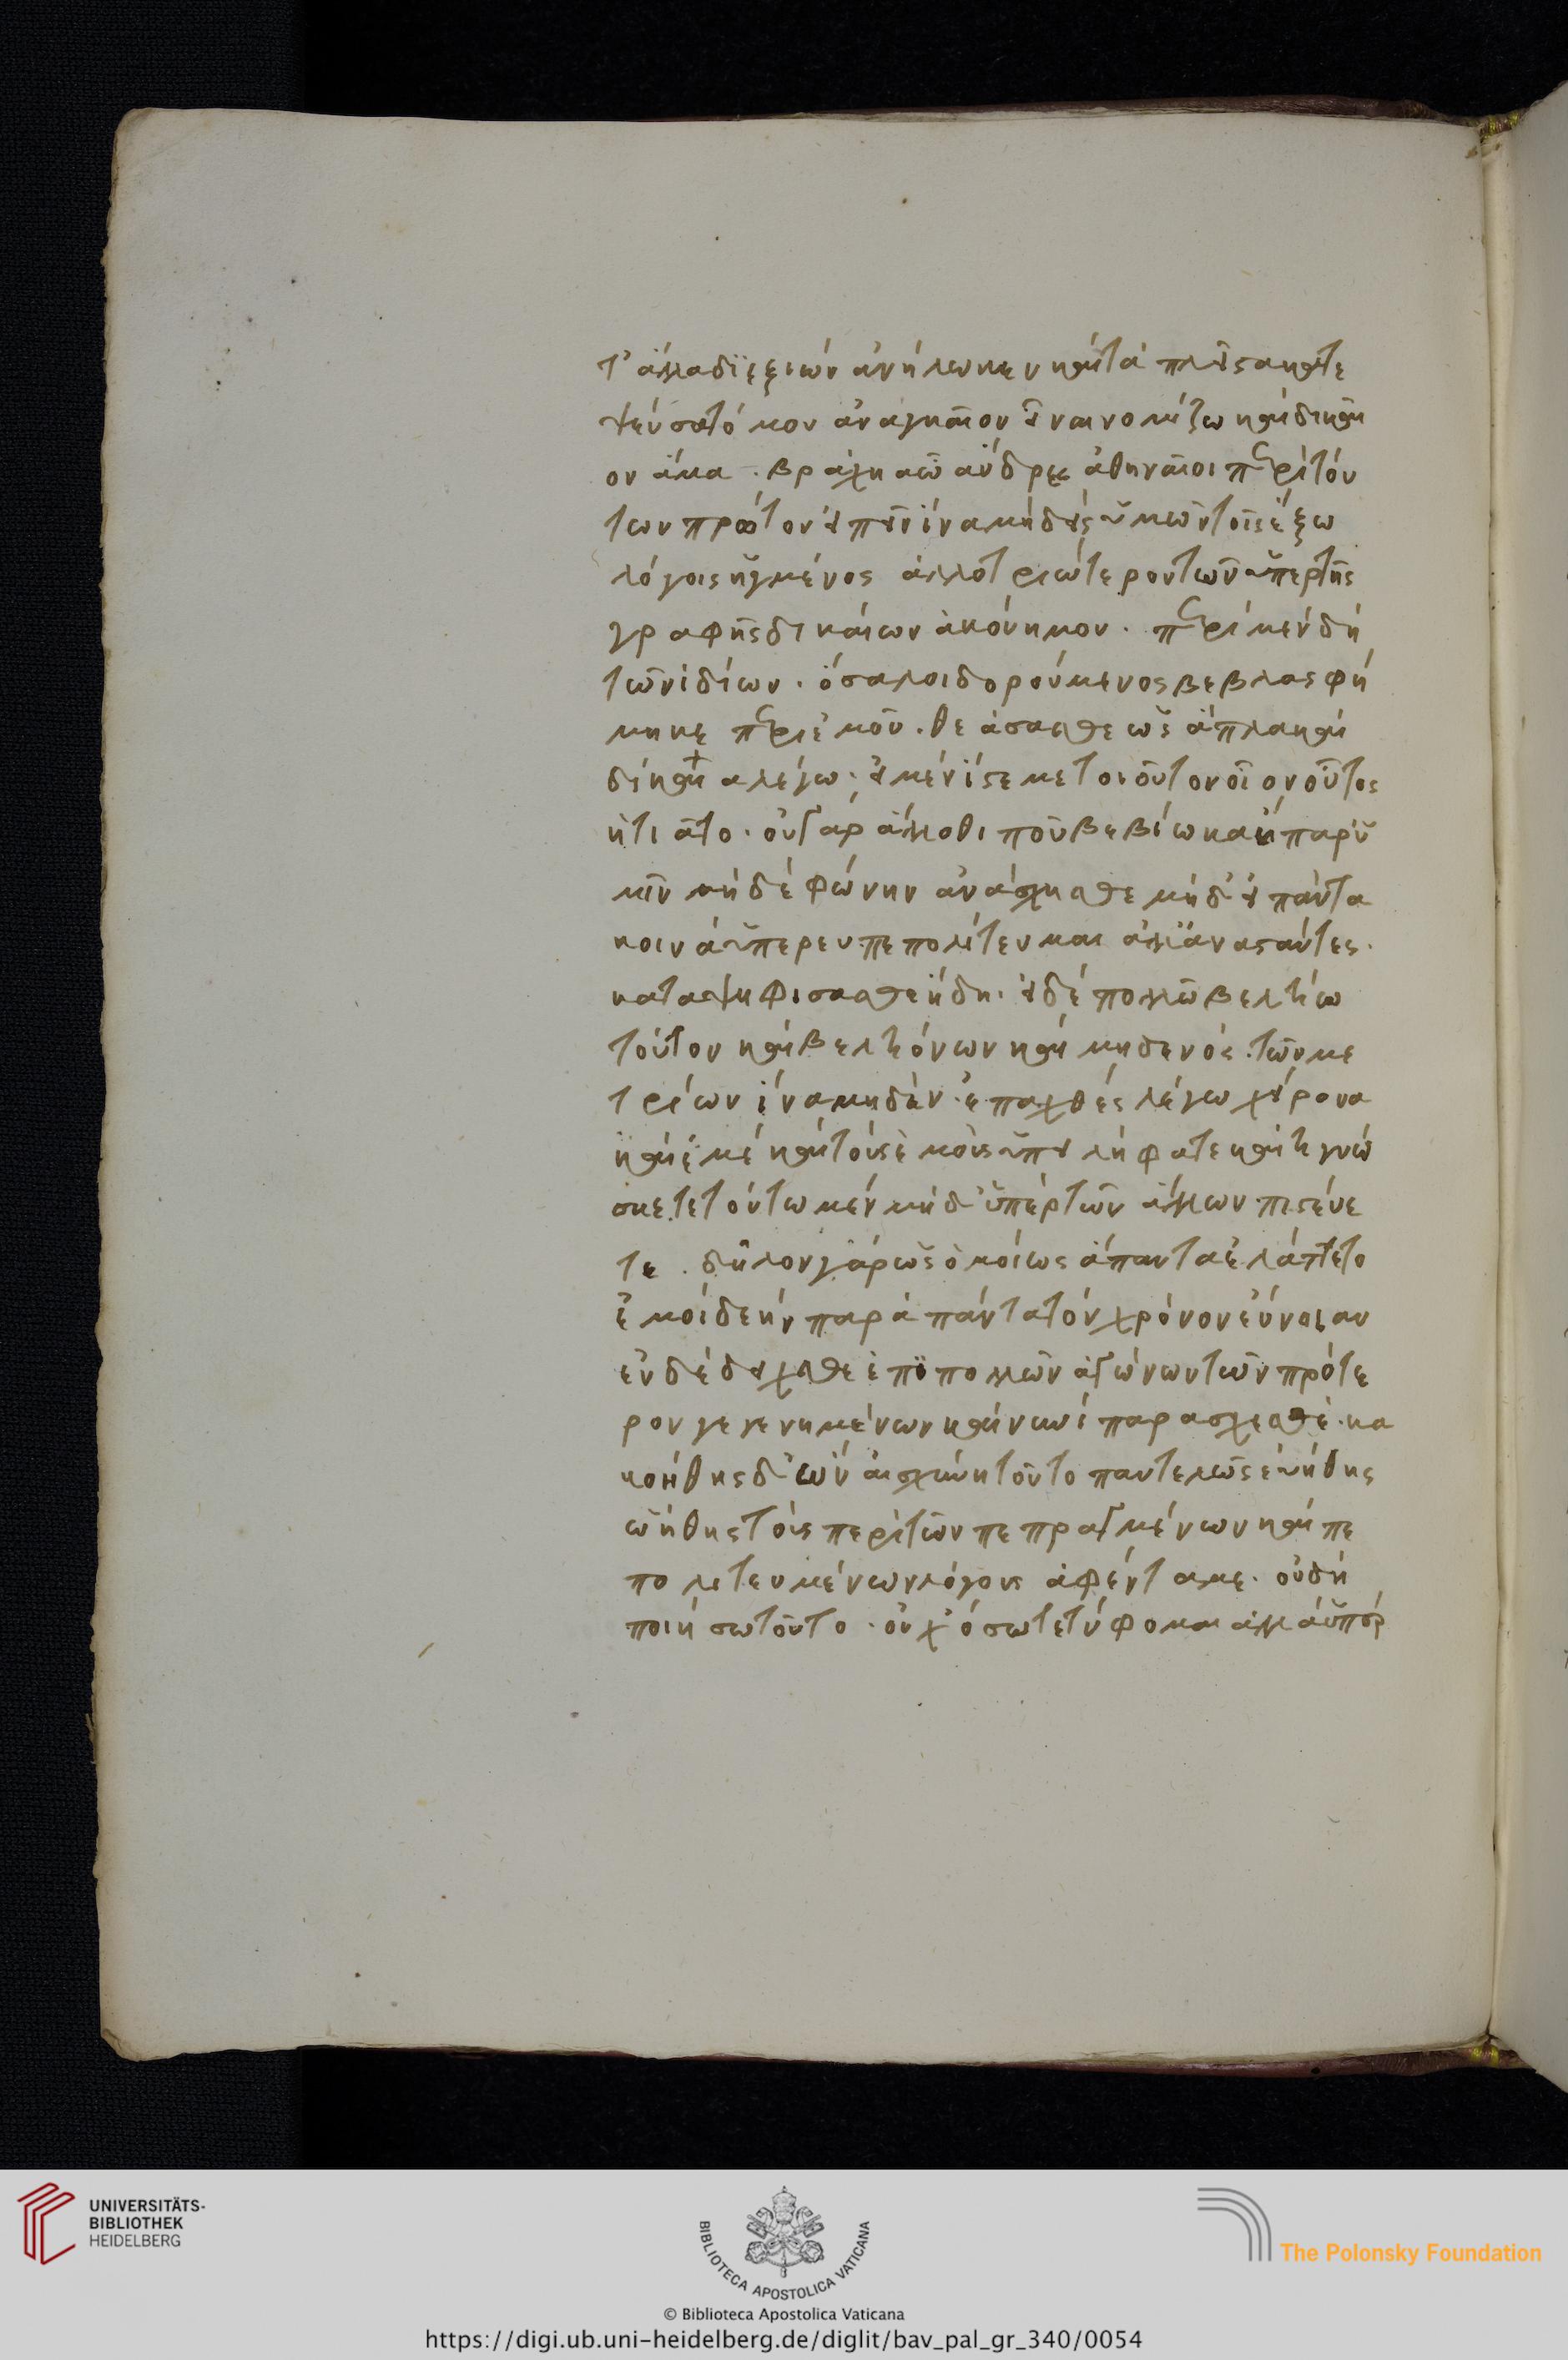 τ' ἄλλα διεξιὼν ἀνήλωκεν καὶ τὰ πλεῖστα κατε
ψεύσατό μου ἀναγκαῖον εἶναι νομίζω καὶ δίκαι
ον ἅμα . βραχῆα ὦ ἄνδρες ἀθηναῖοι περὶ τού
των πρῶτον εἰπεῖν ἵνα μηδεὶς ὑμῶν τοῖς ἔξω
λόγοις ἠγμένος ἀλλοτριώτερον τῶν ὑπὲρ τῆς
γραφῆς δικαίων ἀκούῃ μου . περὶ μὲν δὴ
τῶν ἰδίων . ὅσα λοιδορούμενος βεβλασφή
μηκε περὶ ἐμοῦ . θεάσασθε ὡς ἁπλᾶ καὶ
δίκαια λέγω . εἰ μὲν ἴστε με τοιοῦτον οἷον οὗτος
ἠτιᾶτο . οὐ γὰρ ἄλλοθί που βεβίωκα ἢ παρ' ὑ
μῖν μηδὲ φωνὴν ἀνάσχησθε μηδ' εἰ πάντα
κοινὰ ὑπερευπεπολίτευμαι ἀλλ' ἀναστάντες .
καταψηφίσασθε ἤδη . εἰ δὲ πολλῶ βελτίω
τούτου καὶ βελτιόνων καὶ μηδενὸς . τῶν με
τρίων ἵνα μηδὲν ἐπαχθὲς λέγω χείρονα
καὶ ἐμὲ καὶ τοὺς ἐμοὺς ὑπειλήφατε καὶ γιγνώ
σκετε τούτω μὲν μηδ' ὑπὲρ τῶν ἄλλων πιστεύε
τε . δῆλον γὰρ ὡς ὁμοίως ἅπαντα ἐπλάττετο
ἐμοὶ δὲ ἣν παρὰ πάντα τὸν χρόνον εὔνοιαν
ἐνδέδειχθε ἐπὶ πολλῶν ἀγώνων τῶν πρότε
ρον γεγενημένων καὶ νυνὶ παράσχεσθε . κα
κοήθης δ' ὢν αἰσχίνη τοῦτο παντελῶς εὔηθες
ᾠήθης τοὺς περὶ τῶν πεπραγμένων καὶ πε
πολιτευμένων λόγους ἀφέντα με . οὐ δὴ
ποιήσω τοῦτο . οὐχ' οὕτω τετύφωμαι ἀλλ' ὑπὲρ
UNIVERSITÄTS-
BIBLIOTHEK
HEIDELBERG
BIBLIOTECA APOSTOLICA VATICANA
The Polonsky Foundation
© Biblioteca Apostolica Vaticana
https://digi.ub.uni-heidelberg.de/diglit/bav_pal_gr_340/0054